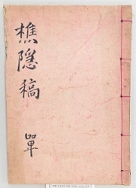 樵隱稿 單